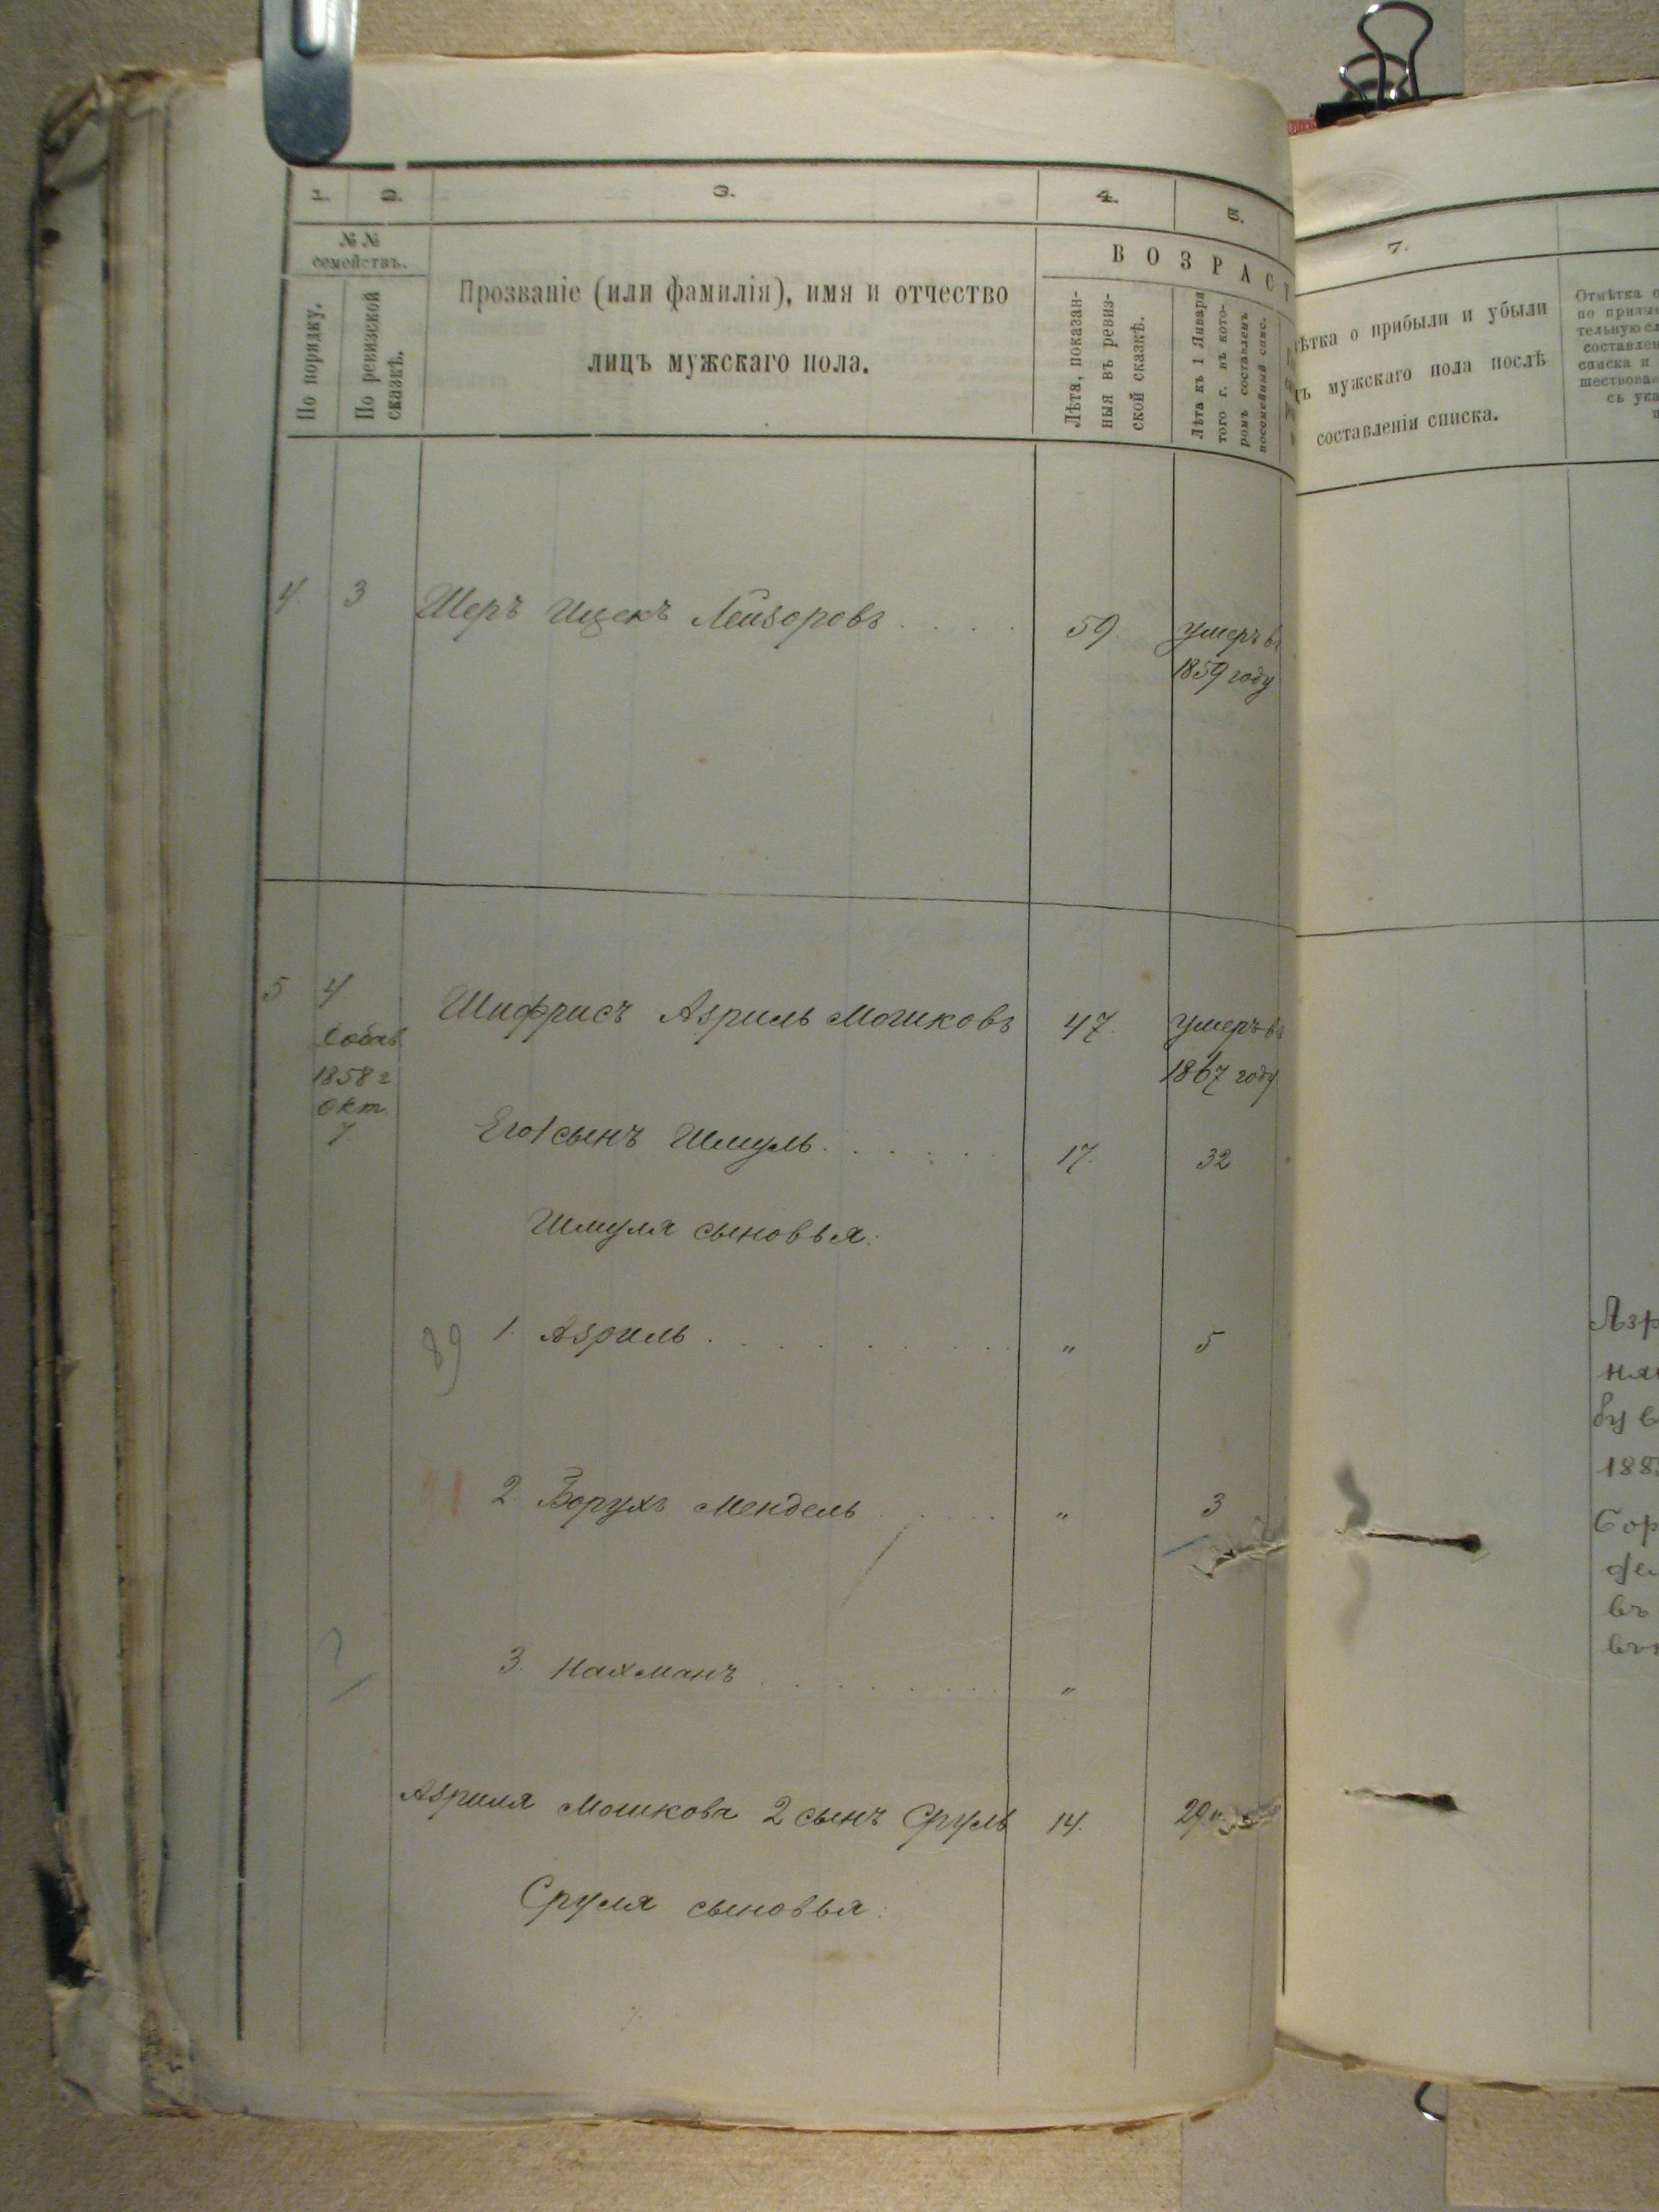 1. 2. 3. 4. 5.
№ №
семействъ.
По порядку.
По ревизской
сказкѣ.
Прозваніе (или фамилія), имя и отчество
лицъ мужскаго пола.
ВОЗРАСТ
Лѣта, показан-
ныя въ ревиз-
ской сказкѣ.
Лѣта къ 1 Января
того г. въ кото-
ромъ составленъ
посемейный спис.
4. 3 Шеръ Ицекъ Лейзоровъ 59. умеръ въ
1859 году
5 4 Шифрисъ Азриль Мошковъ 47. умеръ въ
1867 году
1858 г
Окт.
7.
Его 1 сынъ Шмуль 17. 32
Шмуля сыновья:
89 1. Азриль " 5
2. Борухъ Мендель " 3
3. Нахманъ "
Азриля Мошкова 2 сынъ Сруль 14. 29
Сруля сыновья:
7.
ѣтка о прибыли и убыли
ъ мужскаго пола послѣ
составленія списка.
Отмѣтка о
по призы
тельную сл
составлен
списка и
шествова
съ ука
Азр
ня
бу в
188
Бор
дел
въ